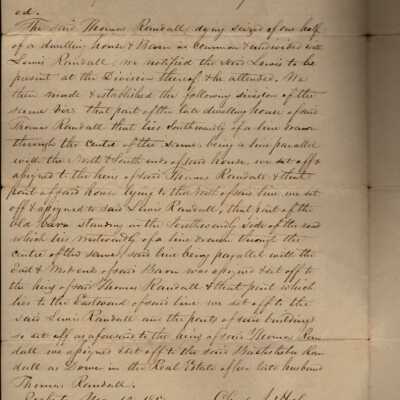 ed.
The said Thomas Randall dying seized of one half
of a dwelling house & Barn in common & undivided with
Lewis Randall, we notified the said Lewis to be
present at the Division thereof & he attended. We
then made & established the following division of the
same viz. that part of the late dwelling house of said
Thomas Randall that lies Southwardly of a line drawn
through the centre of the same being a line parallel
with the North & South ends of said house, we set off &
assigned to the heirs of said Thomas Randall & that
part of said House lying to the North of said line we set
off & assigned to said Lewis Randall, that part of the
old barn standing on the Southwardly side of the road
which lies westwardly of a line drawn through the
centre of the same, said line being parallel with the
East & West ends of said Barn was assigned & set off to
the heirs of said Thomas Randall & that part which
lies to the Eastward of said line we set off to the
said Lewis Randall and the parts of said buildings
so set off as aforesaid to the heirs of said Thomas Ran
dall we assigned & set off to the said Bathsheba Ran
dall as Dower in the Real Estate of her late husband
Thomas Randall.